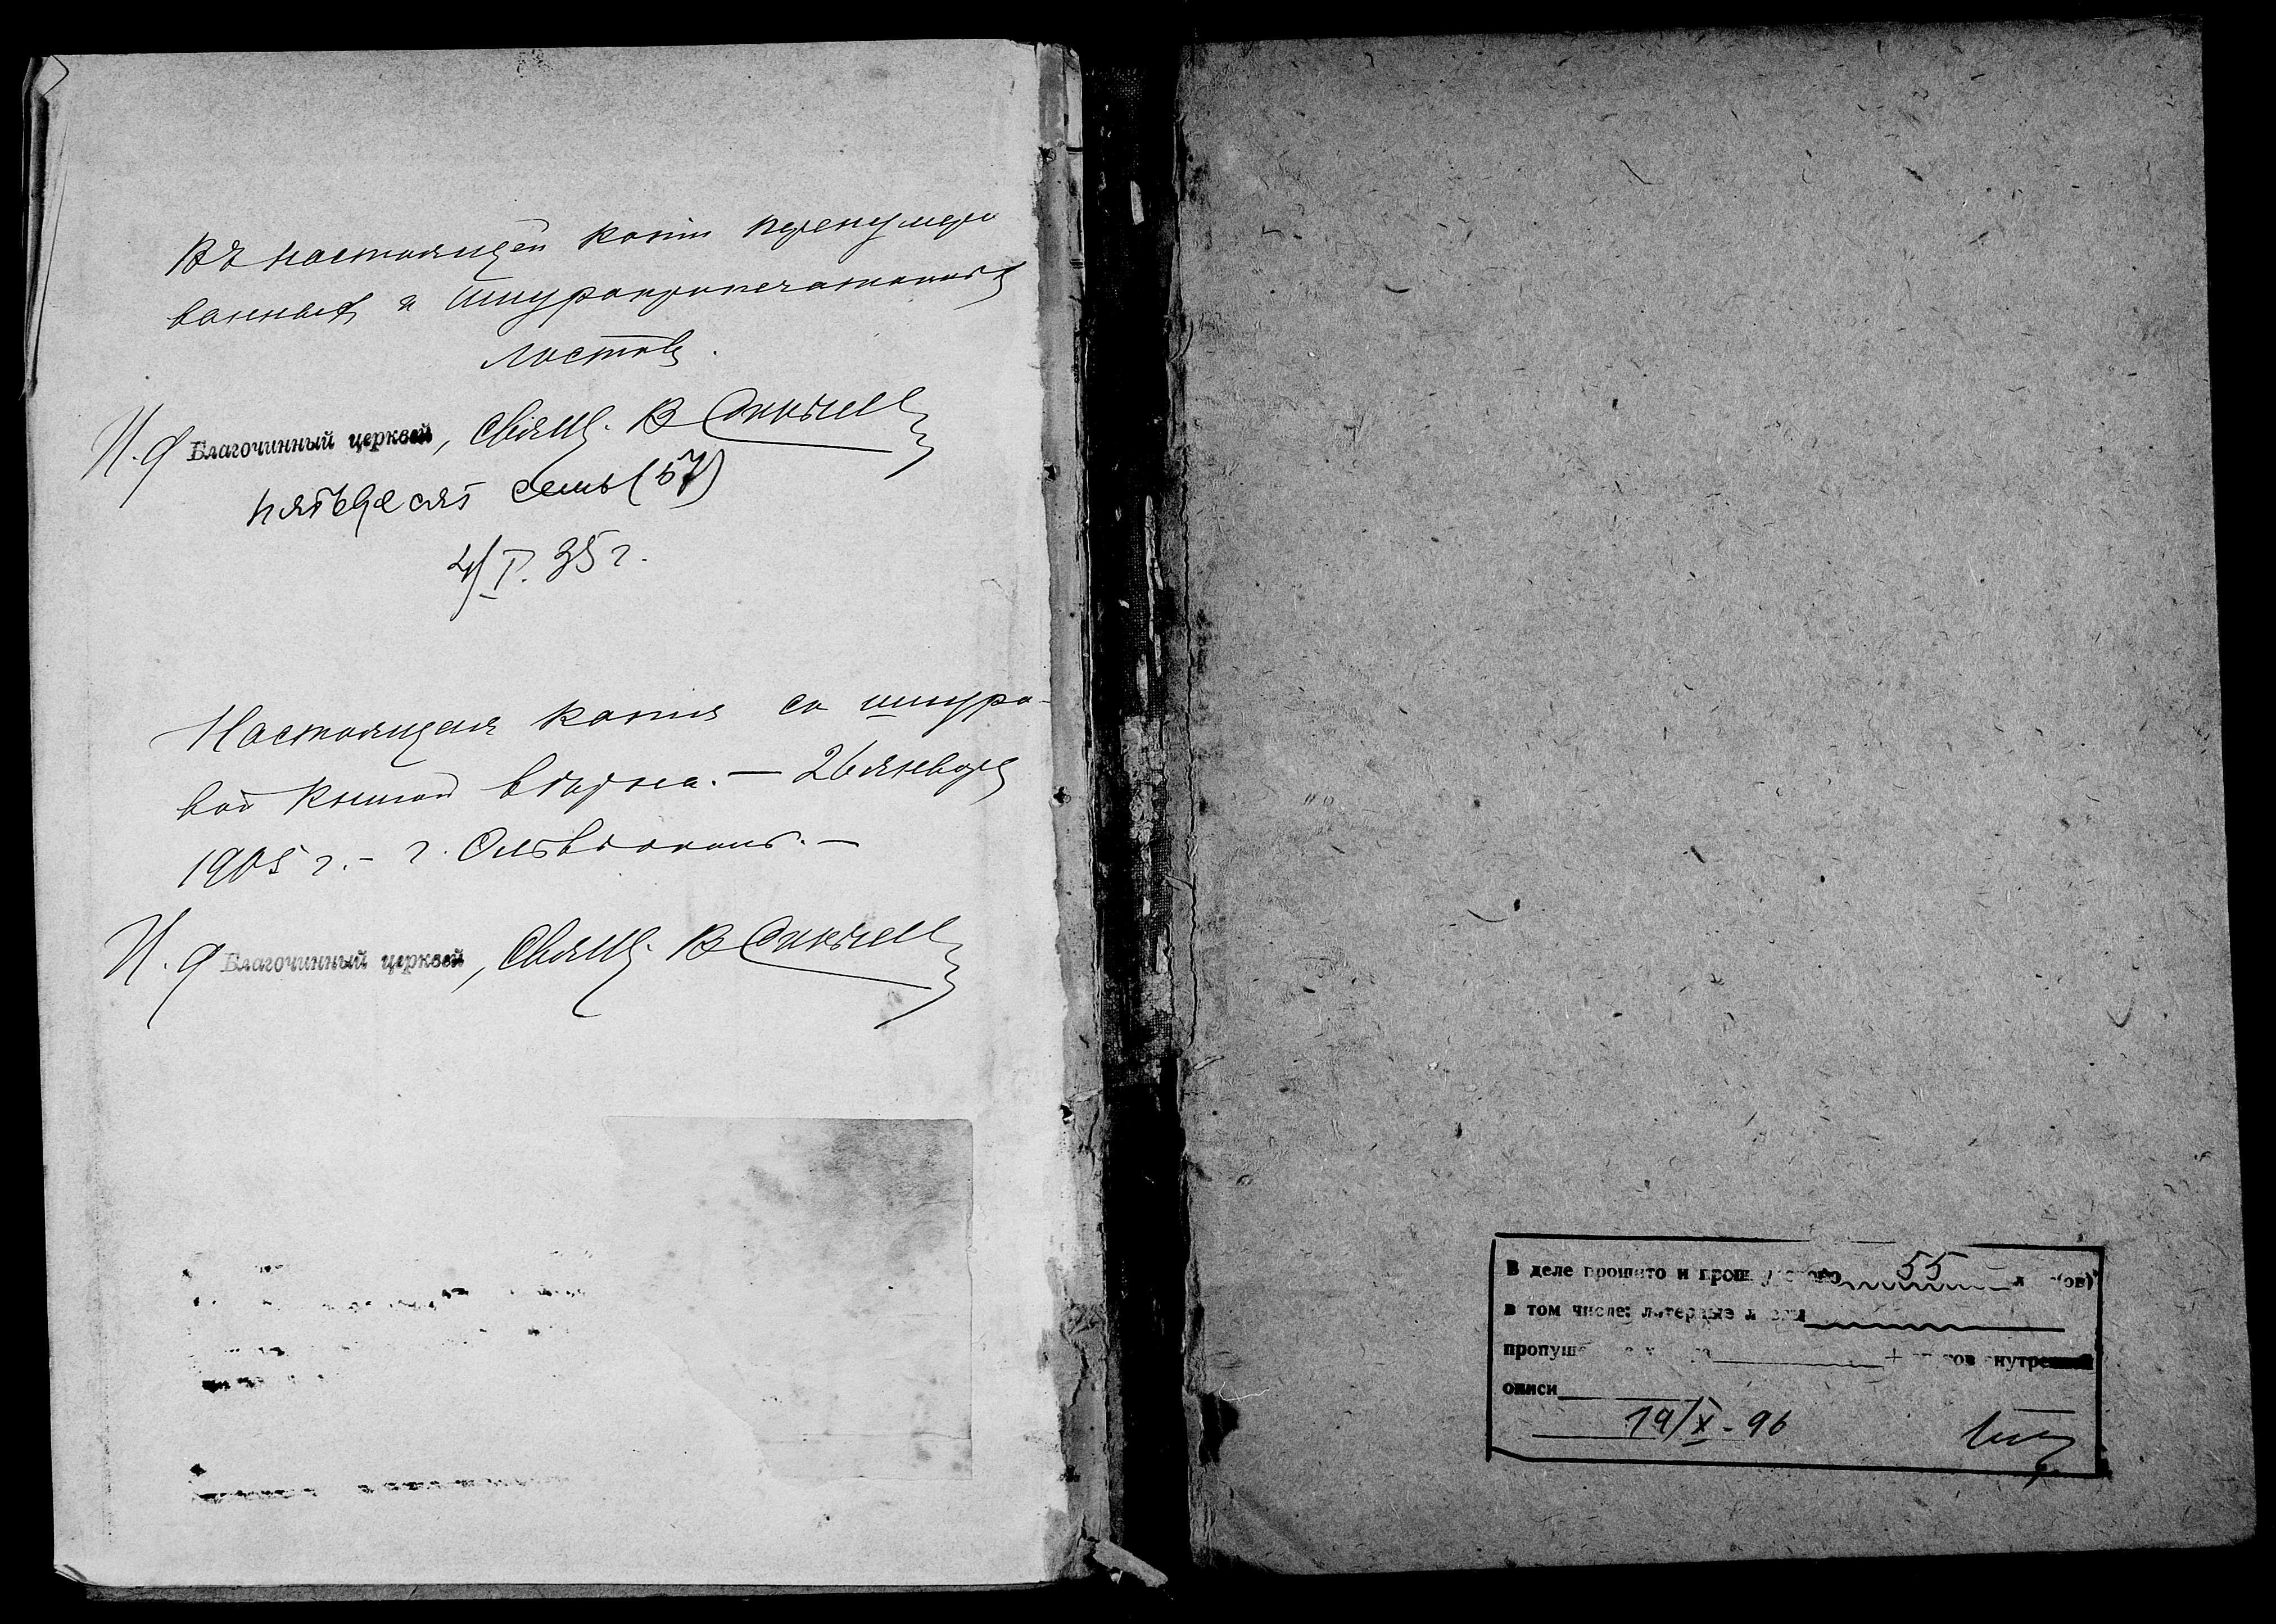 Въ настоящей копіи перенумеро
ванныхъ и шнуропропечатанныхъ
листовъ.
И. д. Благочинный церквей, Свящ. В
пятьдесят семь (57)
4/I. 35 г.
Настоящая копія со шнуро-
вой книгой вѣрна. — 26 января
1905 г. – г. Ольвіополь. —
И. д. Благочинный церквей, Свящ. В
В деле прошито и 55 (ов)
в том числе: литерные листы
описи
19/X - 96